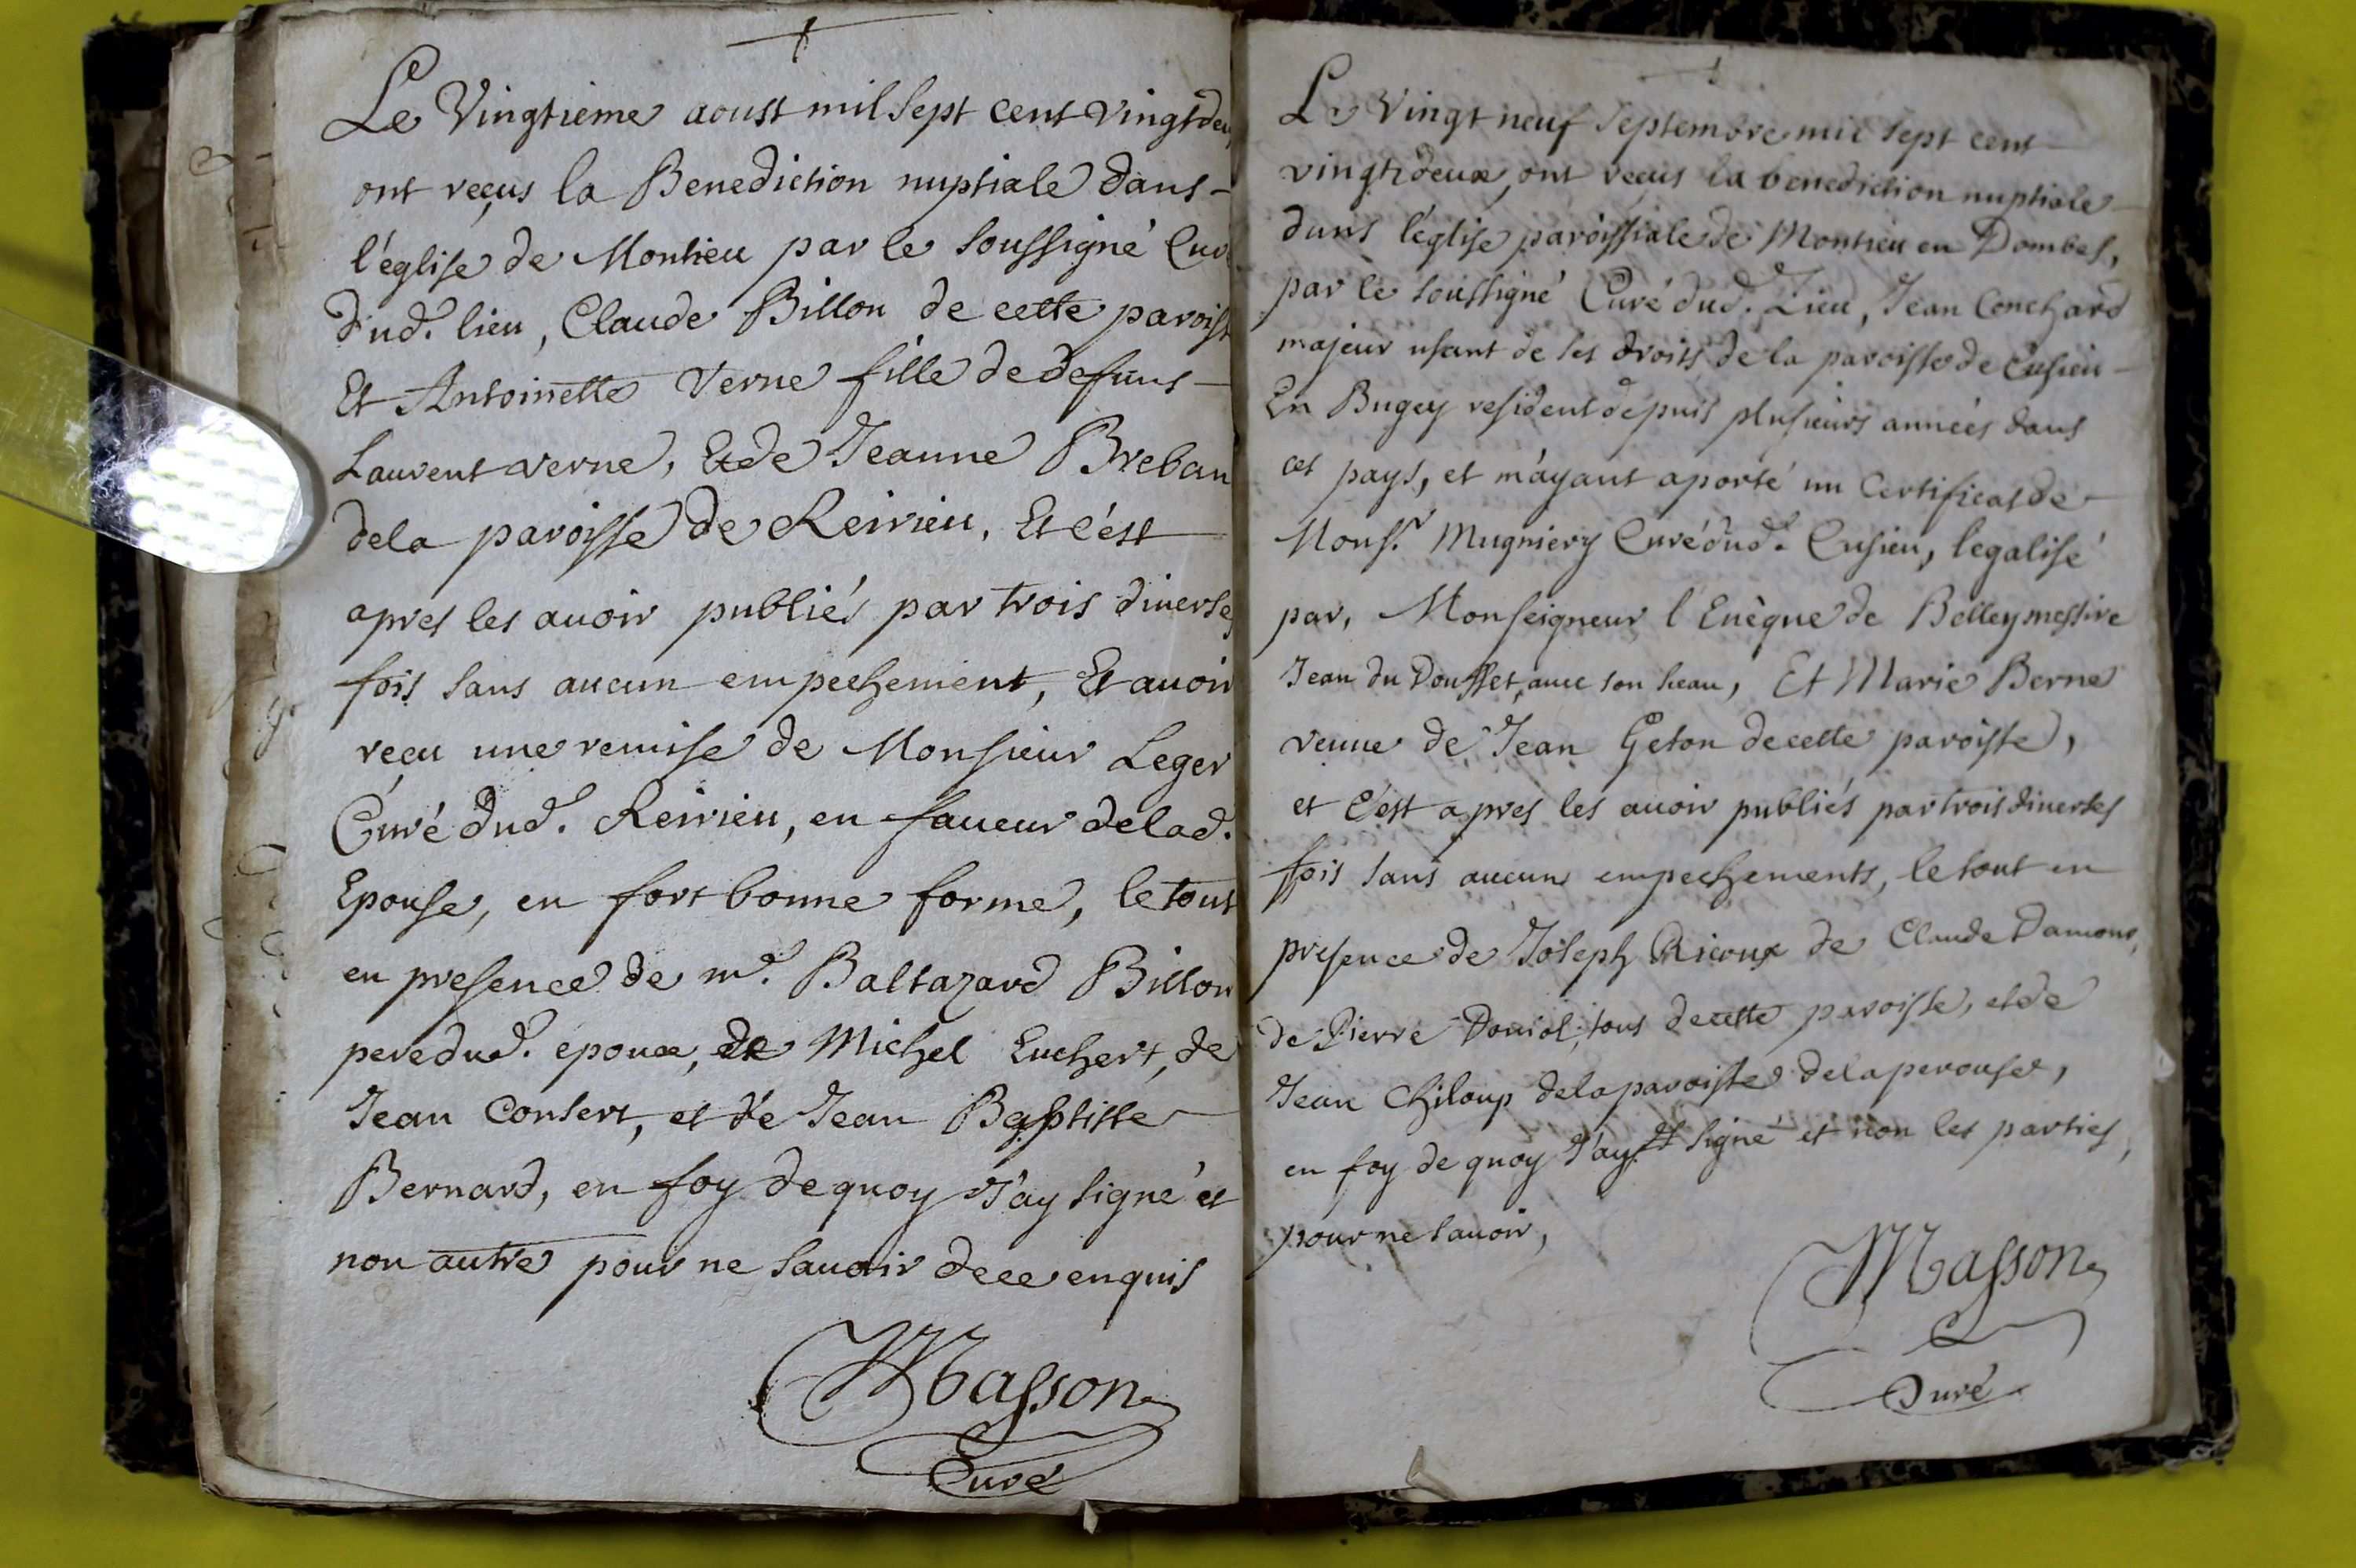 Le Vingtieme aoust mil sept cent vingt deu
ont reçus la Benediction nuptiale dans
l'églisе de Montieu par le soussigné Cur
dud. lieu, Claude Billon de cette paroiss
Et Antoinette Verne fille de defuns
Laurent verne, Et de Jeanne Breban
de la paroisse de Reirieu, Et c'est
apres les auoir publiés par trois diuerses
fois sans aucun empechement, Et auoir
reçu une remise de Monsieur Leger
Curé dud. Reirieu, en faueur de lad.
Epouse, en fort bonne forme, le tout
en presence de me. Baltazard Billon
pere dud. epoux, de Michel Euchert, de
Jean Consert, et de Jean Baptiste
Bernard, en foy de quoy J'ay signé et
non autre pour ne sauoir de ce enquis
Masson
Curé
Le Vingt neuf Septembre mil sept cent
vingt deux, ont reçus la benediction nuptiale
dans l'église paroissiale de Montieu en Dombes,
par le soussigné Curé dud. Lieu, Jean Conchard
majeur usant de ses droits de la paroisse de Cusieu
En Bugey resident depuis plusieurs années dans
cet pays, et m'ayant aporté un Certificat de
Monsr. Mugniery Curé dud. Cusieu, legalisé
par, Monseigneur l'Euêque de Belley messire
Jean du Dousset, auec son sceau, Et Marie Berne
veuue de Jean Geton de cette paroisse,
et c'est apres les auoir publiés par trois diuerses
fois sans aucuns empechements, le tout en
presence de Joseph Ricoux de Claude Damour,
de Pierre Douiol, tous de cette paroisse, et de
Jean Chiloup de la paroisse de la perouse,
en foy de quoy J'ay signé et non les parties,
pour ne sauoir,
Masson
Curé